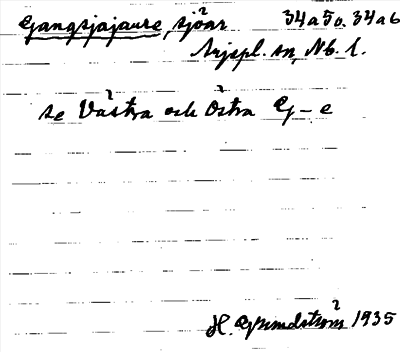 Gangsjajaure, sjöar 34a5o. 34a6
Arjepl. sn, Nb. l.
se Västra och Östra G-e
H. Grundström 1935